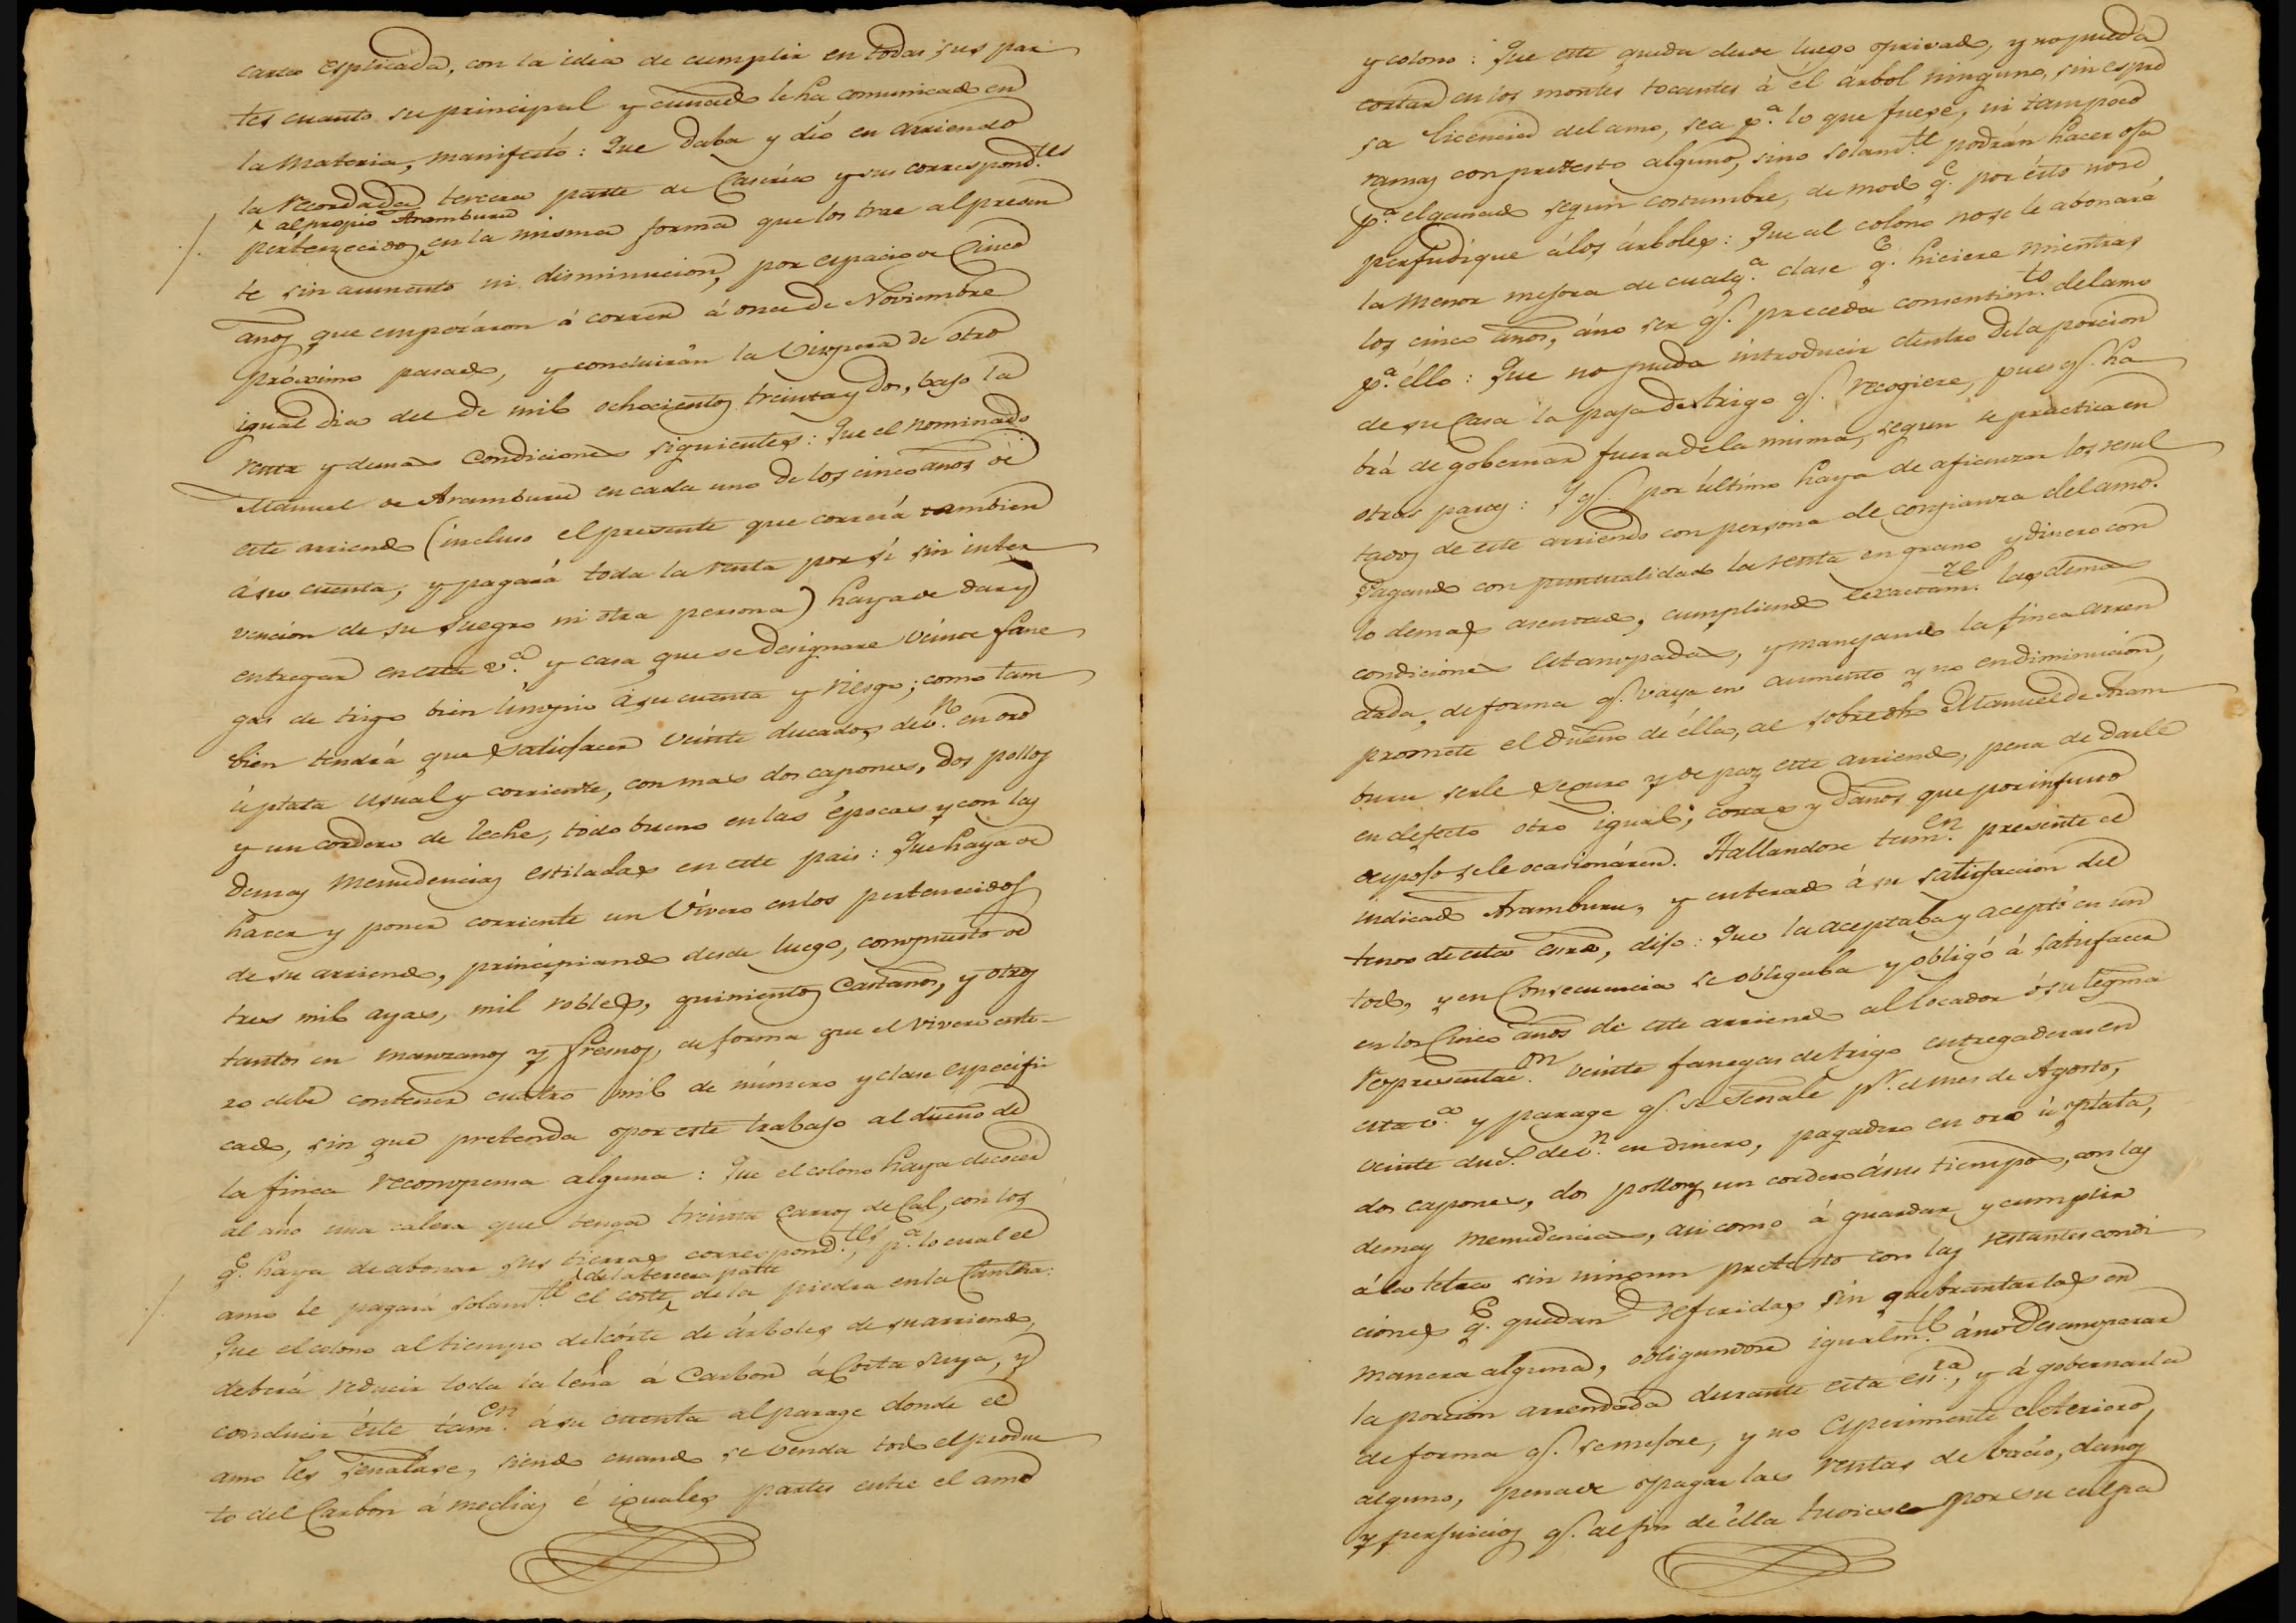 carta esplicada, con la idea de cumplir en todas sus par
tes cuanto su principal y cuñado le ha comunicado en
la materia, manifestó: Que daba y dió en arriendo
la recordada tercera parte de Caserío y sus correspond.tes
al propio Aramburu
pertenecidos en la misma forma que los trae al presen
te sin aumento ni disminucion, por espacio de Cinco
años que empezáron á correr á once de Noviembre
próximo pasado, y concluirán la Vispera de otro
igual dia del de mil ochocientos treinta y dos, bajo la
renta y demas Condiciones siguientes: Que el nominado
Manuel de Aramburu en cada uno de los cinco años de
este arriendo (incluso el presente que correrá tambien
á su cuenta, y pagará toda la renta por sí sin inter
vencion de su Suegro ni otra persona) haya de dar y
entregar en esta v.a y casa que se designare veinte fane
gas de trigo bien limpio á su cuenta y riesgo; como tam
bien tendrá que satisfacer veinte ducados de v.n en oro
ú plata usual y corriente, con mas dos capones, dos pollos
y un cordero de leche, todo bueno en las épocas y con las
demas menudencias estiladas en este pais: Que haya de
hacer y poner corriente un Vívero en los pertenecidos
de su arriendo, principiando desde luego, compuesto de
tres mil ayas, mil robles, quinientos Castaños, y otros
tantos en manzanos y fresnos, de forma que el vivero ente-
ro debe contener cuatro mil de número y clase especifi
cado, sin que pretenda por este trabajo al dueño de
la finca recompensa alguna: Que el colono haya de cocer
al año una calera que tenga treinta Carros de Cal, con los
q.e haya de abonar sus tierras correspond.tes, p.a lo cual el
de la tercera parte
amo le pagará solam.te el coste de la piedra en la Cantera:
Que el colono al tiempo del córte de árboles de su arriendo,
deberá reducir toda la leña á Carbon á Costa suya, y
conducir éste tam.en á su cuenta al parage donde el
amo les señalase, siendo cuando se venda todo el produc
to del Carbon á medias é iguales partes entre el amo
y colono: Que este queda desde luego privado, y no pueda
cortar en los montes tocantes á él árbol ninguno, sin espre
sa licencia del amo, sea p.a lo que fuese, ni tampoco
ramas con pretesto alguno, sino solam.te podrán hacer oja
p.a el ganado segun costumbre, de modo q.e por ésto no se
perjudique á los árboles: Que al colono no se le abonará
la menor mejora de cualq.a clase q.e hiciere mientras
los cinco años, á no ser q.e preceda consentim.to del amo
p.a éllo: Que no pueda introducir dentro de la porcion
de su Casa la paja de trigo q.e recogiere, pues q.e ha
brá de gobernar fuera de la misma, segun se practica en
otras partes: Y q.e por último haya de afianzar los resul
tados de este arriendo con persona de confianza del amo.
Pagando con puntualidad la renta en grano y dinero con
lo demas asentado, cumpliendo exactam.te las demas
condiciones estampadas, y manejando la finca arren
dada, de forma q.e vaya en aumento y no en diminucion,
promete el dueño de élla, al sobredho Manuel de Aram
buru serle seguro y de paz este arriendo, pena de darle
en defecto otro igual, costas y daños que por infruc
se le ocasionáren. Hallandose tam.en presente el
indicado Aramburu, y enterado á su satisfaccion del
tenor de esta esra, dijo: Que la aceptaba y aceptó en un
todo, y en Consecuencia se obligaba y obligó á satisfacer
en los Cinco años de este arriendo al locador ó su legma
representac.on veinte fanegas de trigo entregaderas en
esta v.a y parage q.e se señale p.r el mes de Agosto,
veinte duc.s de v.n en dinero, pagadero en oro ú plata,
dos capones, dos pollos y un cordero á sus tiempos, con las
demas menudencias, asi como á guardar y cumplir
á la letra sin ningun pretesto con las restantes condi
ciones q.e quedan referidas sin quebrantarlas en
manera alguna, obligandose igualm.te á no desamparar
la porcion arrendada durante esta es.ra, y á gobernarla
de forma q.e se mejore, y no esperimente deterioro,
alguno, pena de pagar las rentas de bacío, daños
y perjuicios q.e al fin de élla tuviese por su culpa